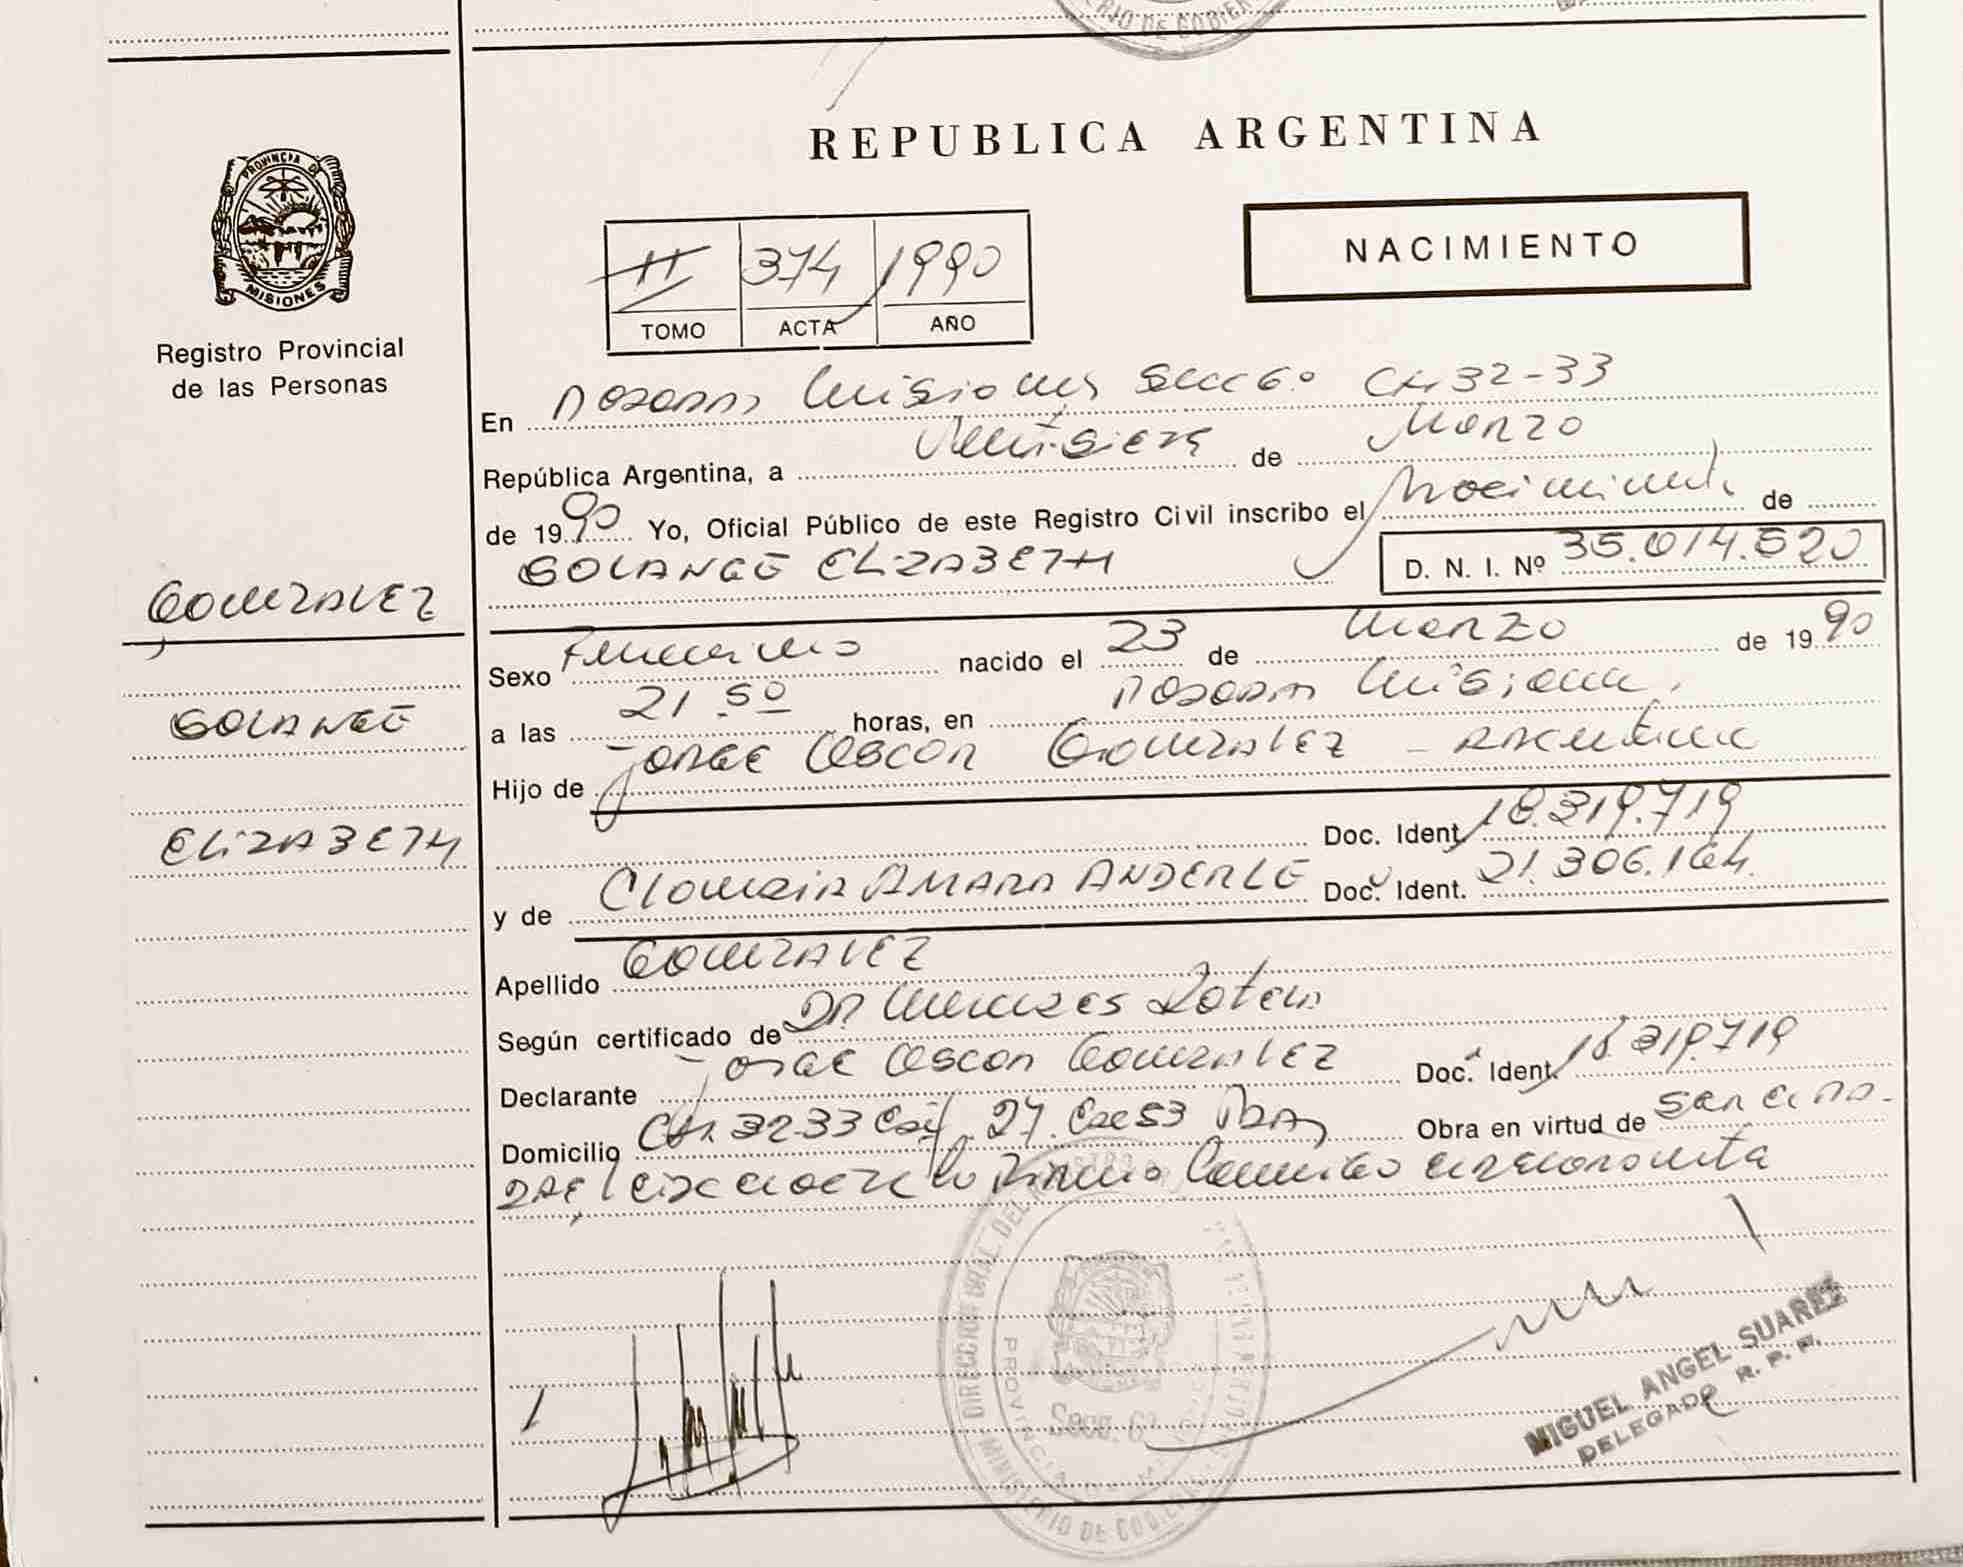 REPUBLICA ARGENTINA
PROVINCIA DE
MISIONES
Registro Provincial
de las Personas
NACIMIENTO
II 374 1990
TOMO ACTA AÑO
En Posadas Misiones Secc 6º Ch. 32-33
República Argentina, a Veintiseis de Marzo
de 1990 Yo, Oficial Público de este Registro Civil inscribo el Nacimiento de
SOLANGE ELIZABETH D. N. I. Nº 35.014.520
GONZALEZ
SOLANGE
ELIZABETH
Sexo Femenino nacido el 23 de Marzo de 1990
a las 21.50 horas, en Posadas Misiones
Hijo de Jorge Oscar Gonzalez - Argentino
Doc. Ident. 18.319.719
y de Claudia AMARA ANDERLE Doc. Ident. 21.306.164
Apellido GONZALEZ
Según certificado de Dr
Declarante Jorge Oscar Gonzalez Doc. Ident. 18.319.719
Domicilio Ch. 32-33 27 53 Obra en virtud de ser el pa-
dre
Secc. 6ª
MINISTERIO DE GOBIERNO
MIGUEL ANGEL SUAREZ
DELEGADO R. P. P.